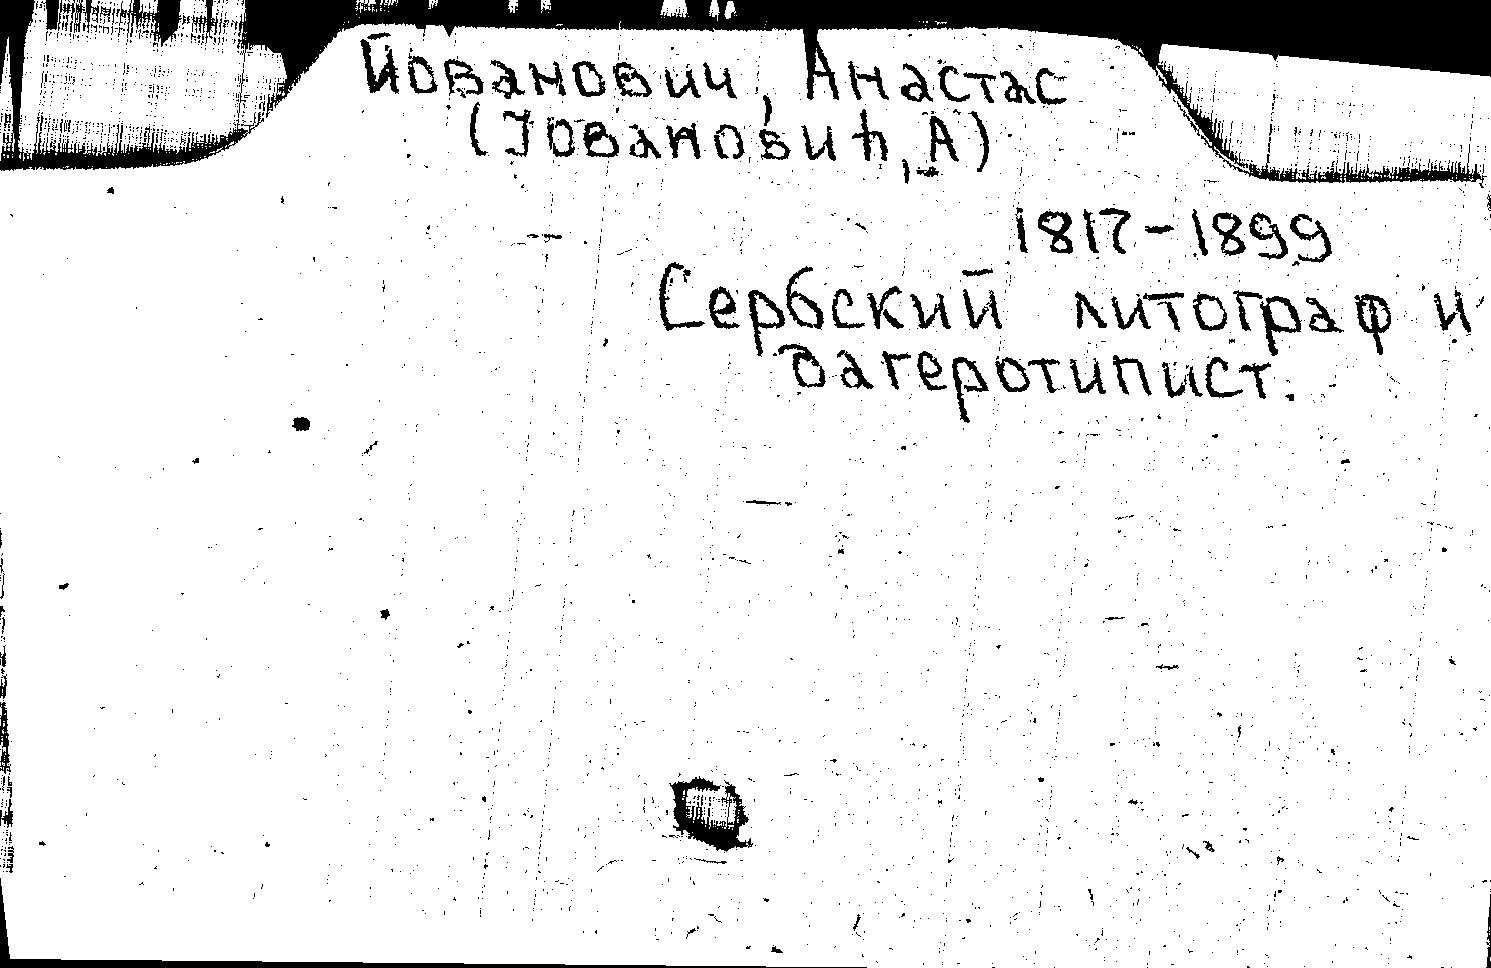 Йованович, Анастас
(Јовановић, А)
1817-1899
Сербский литограф и
дагеротипист.